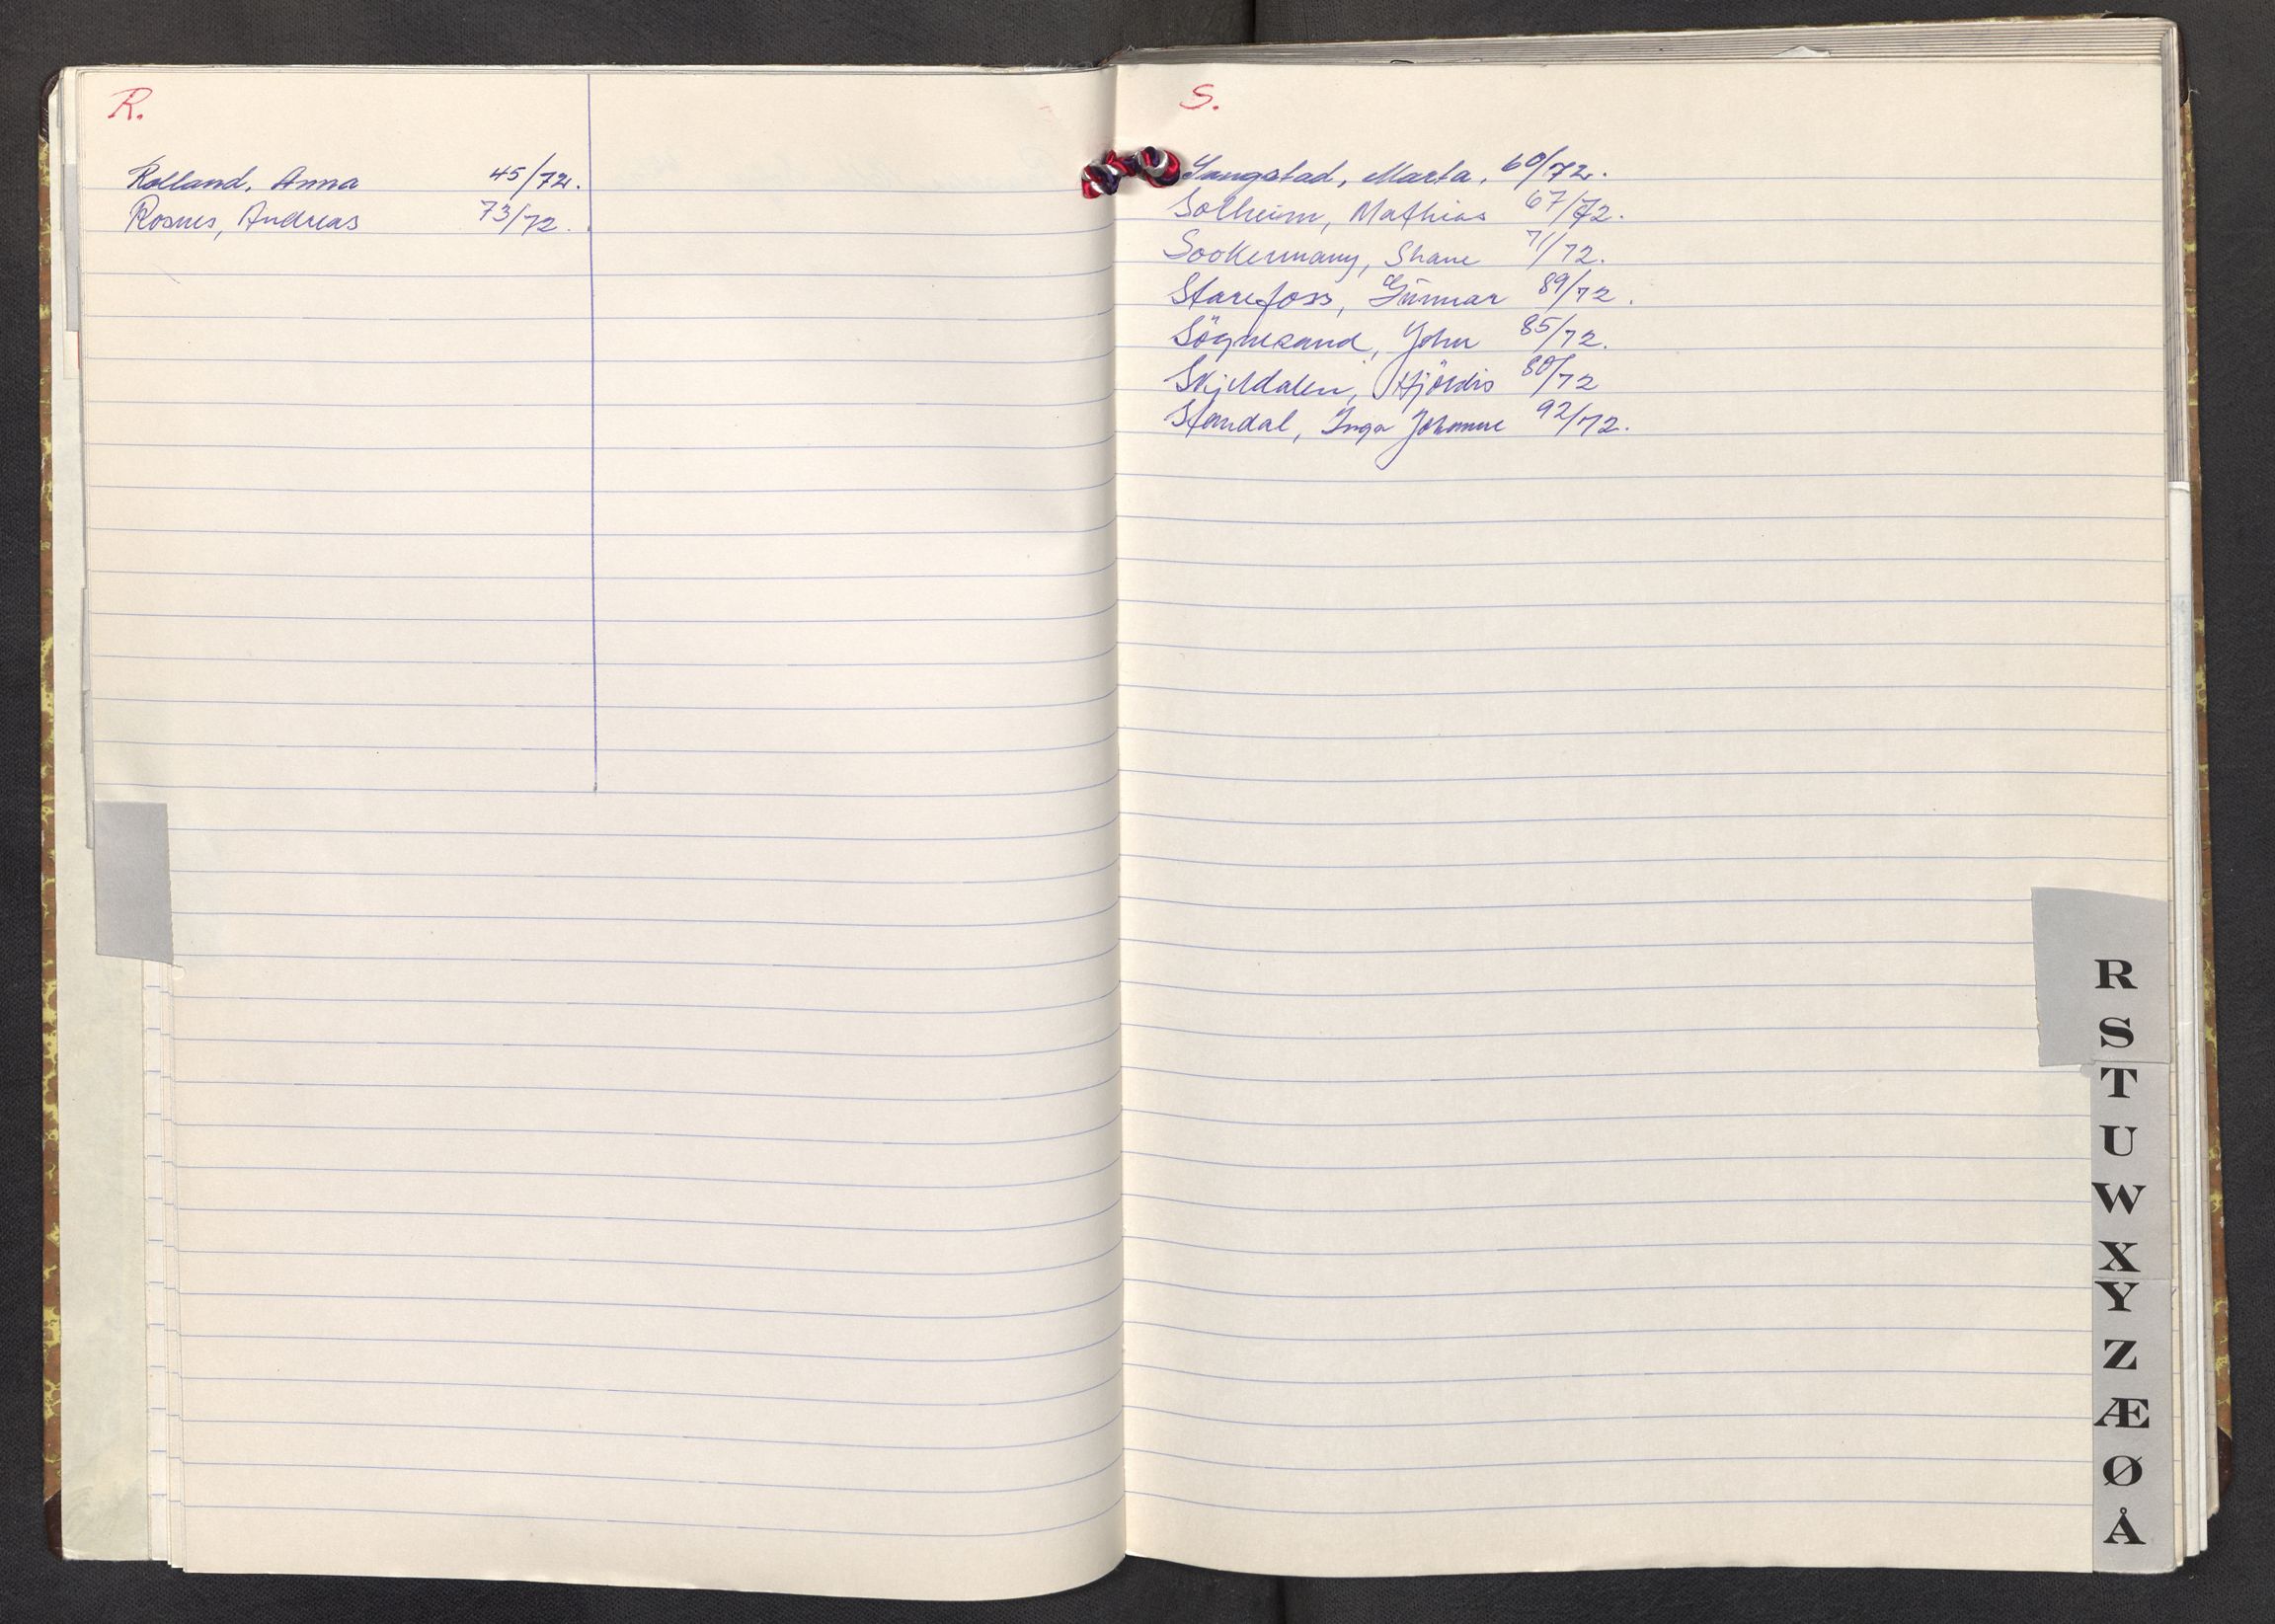 R.
Rolland, Anna 45/72.
Rosnes, Andreas 73/72.
S.
Sangstad, Marta, 60/72.
Solheim, Mathias 67/72.
Sookermany, Shane 71/72.
Starefoss, Gunnar 89/72.
Sögnesand, John 85/72.
Skjeldalen, Hjördis 80/72
Standal, Inga Johanne 92/72.
R
S
T
U
W
X
Y
Z
Æ
Ø
Å